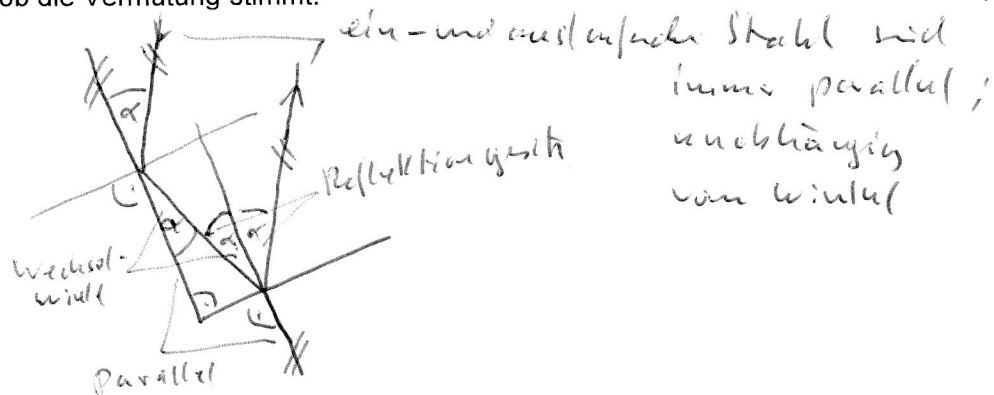 ob die Vermutung stimmt.
ein- und auslaufender Strahl sind
immer parallel;
unabhängig
vom Winkel
α
Reflektionsgesetz
α
α
α
Wechsel-
winkel
parallel